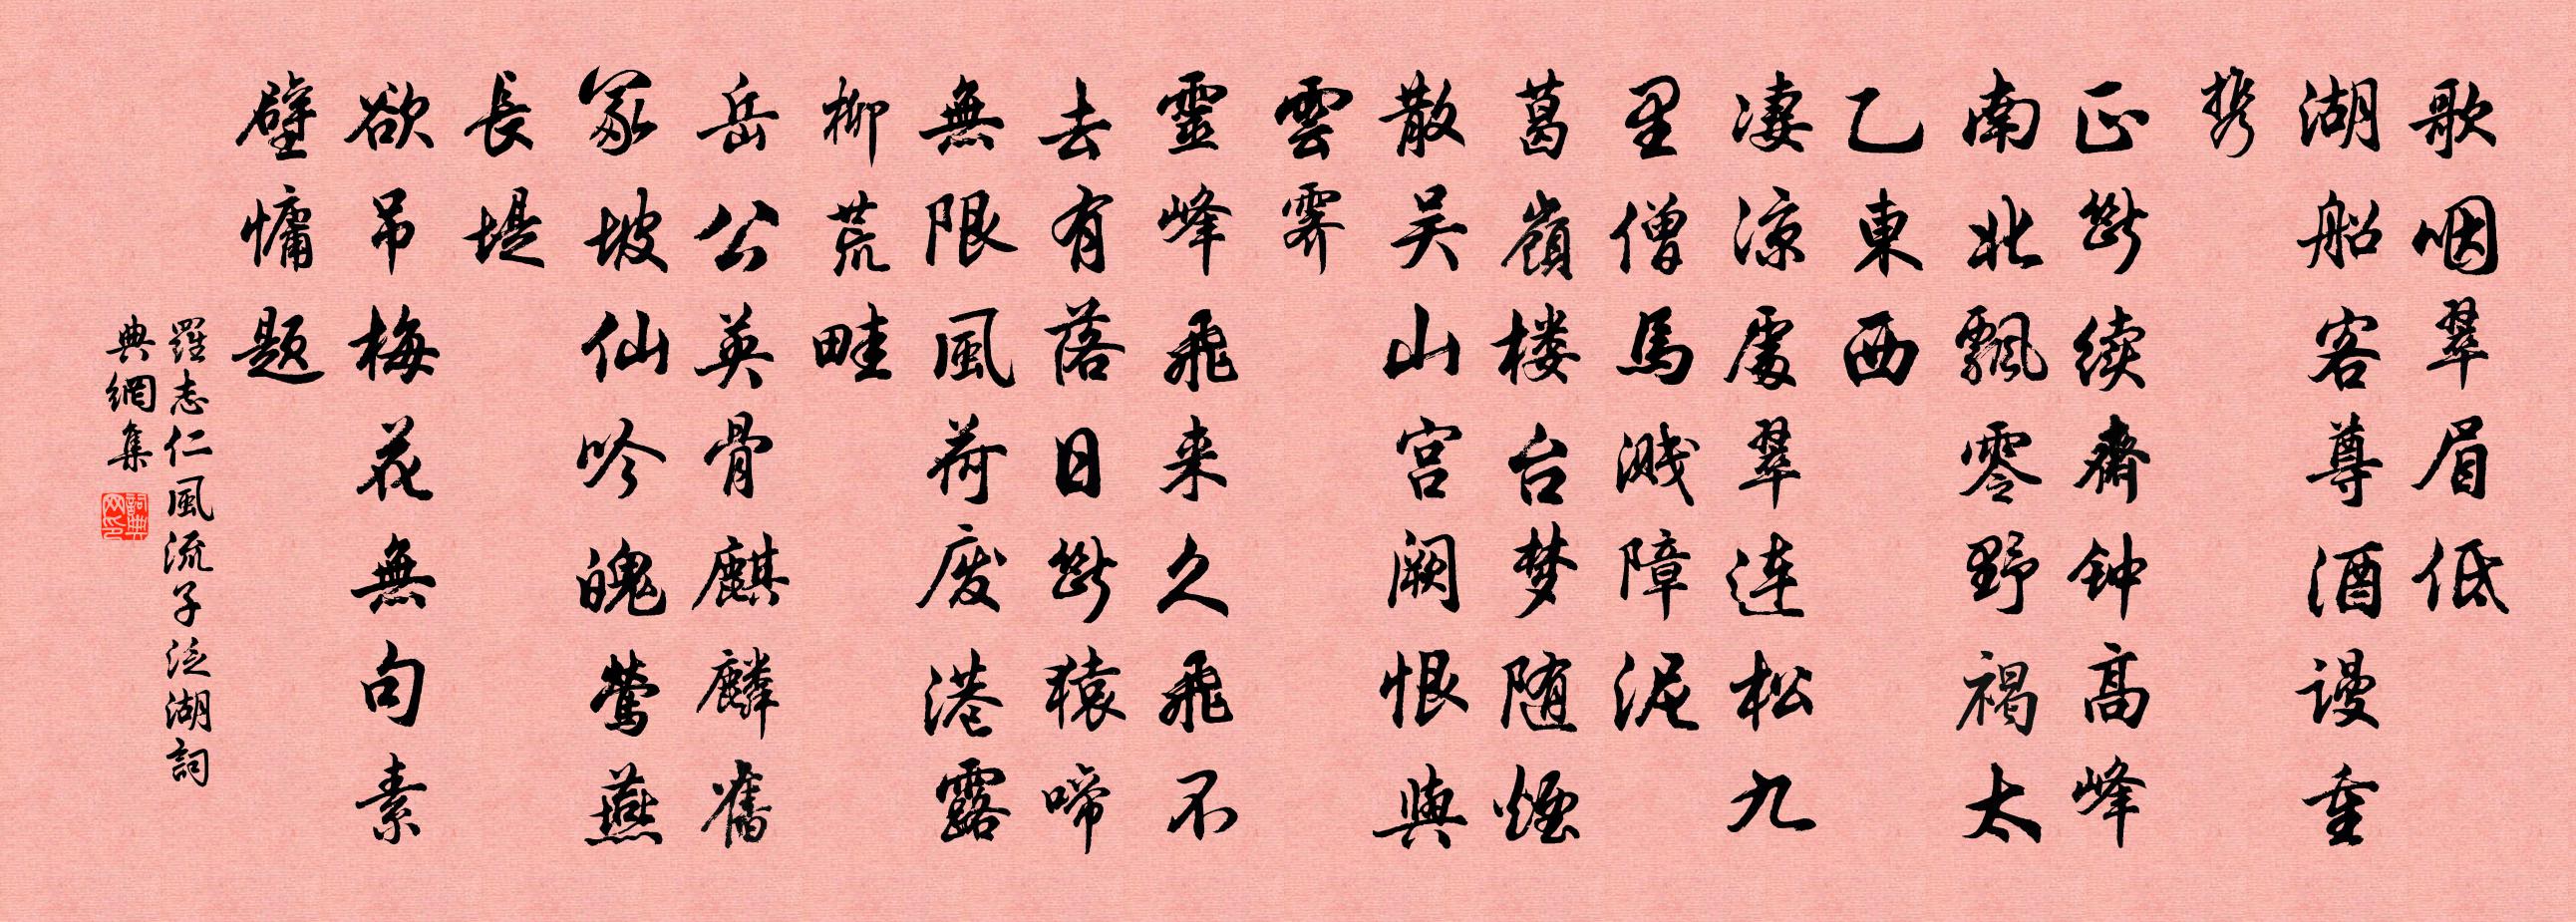 歌咽翠眉低
湖船客尊酒谩重
携
正斷续齋钟高峰
南北飄零野褐太
乙東西
凄凉處翠连松九
里僧馬溅障泥
葛嶺楼台梦随烟
散吴山宫阙恨與
雲霽
靈峰飛来久飛不
去有落日斷猿啼
無限風荷废港露
柳荒畦
岳公英骨麒麟舊
冢坡仙吟魄莺燕
長堤
欲吊梅花無句素
壁慵题
羅志仁風流子泛湖詞
典網集